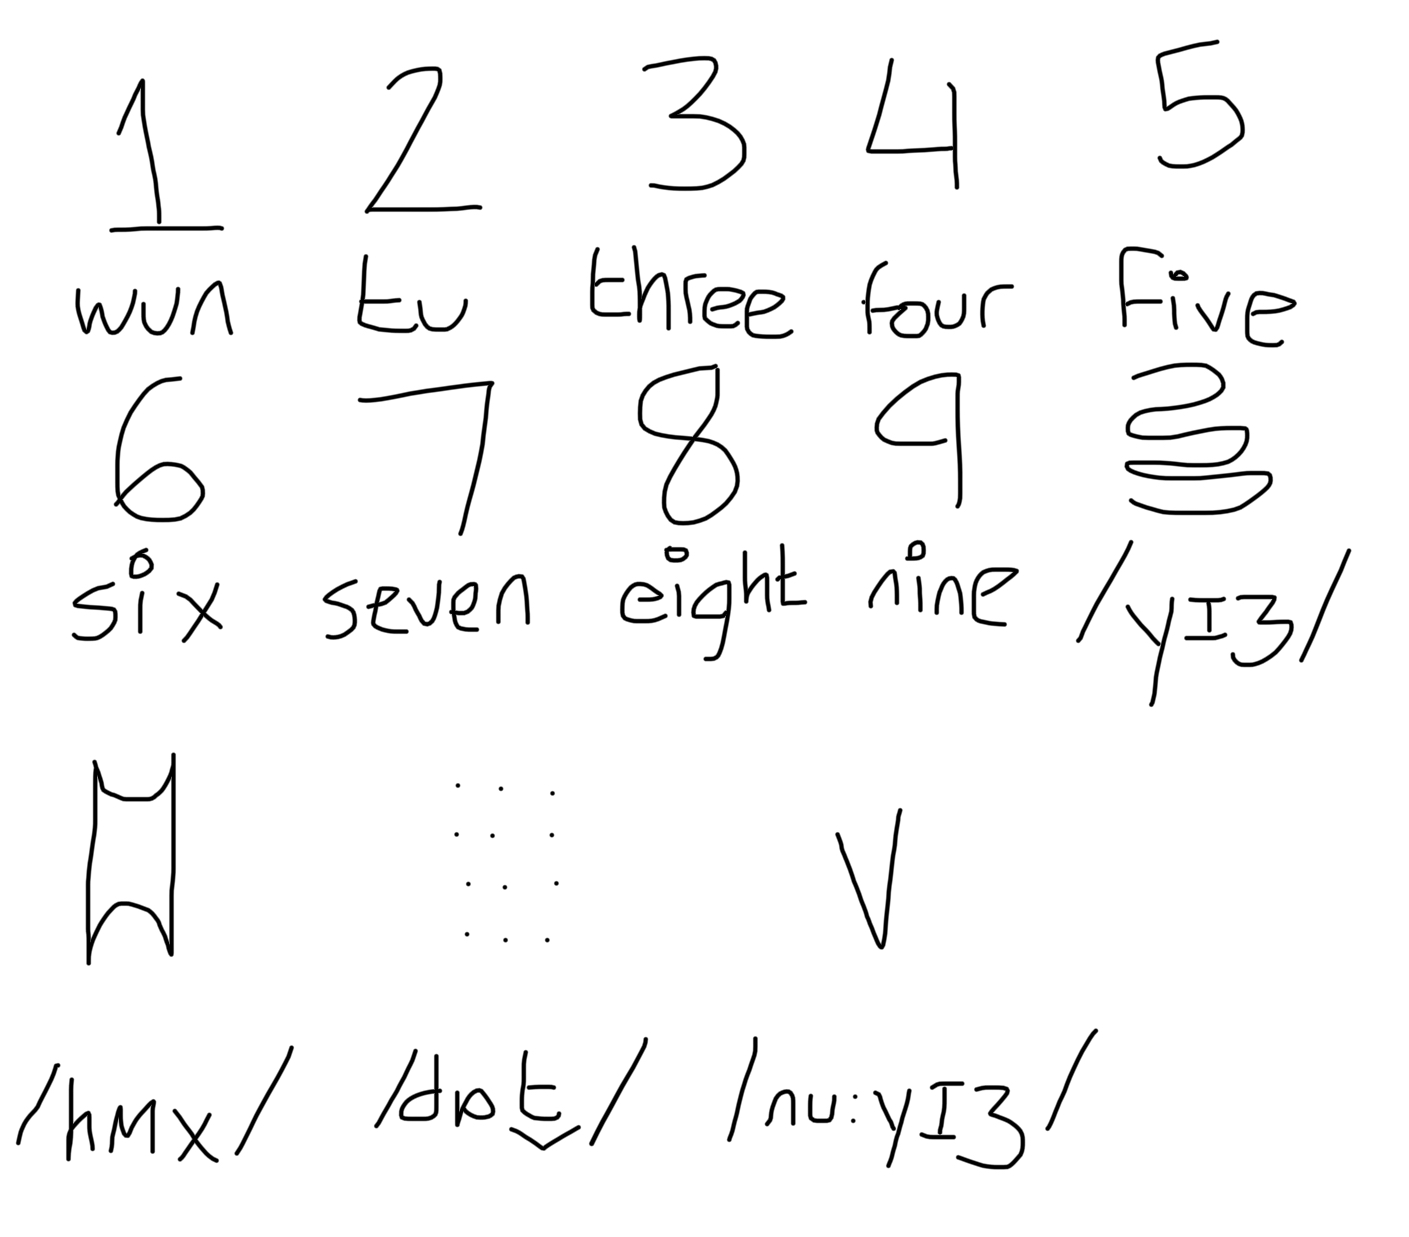 1 2 3 4 5
wun tu three four Five
6 7 8 9
six seven eight nine /yIʒ/
/hMx/ /dɒt̬/ /nu:yIʒ/